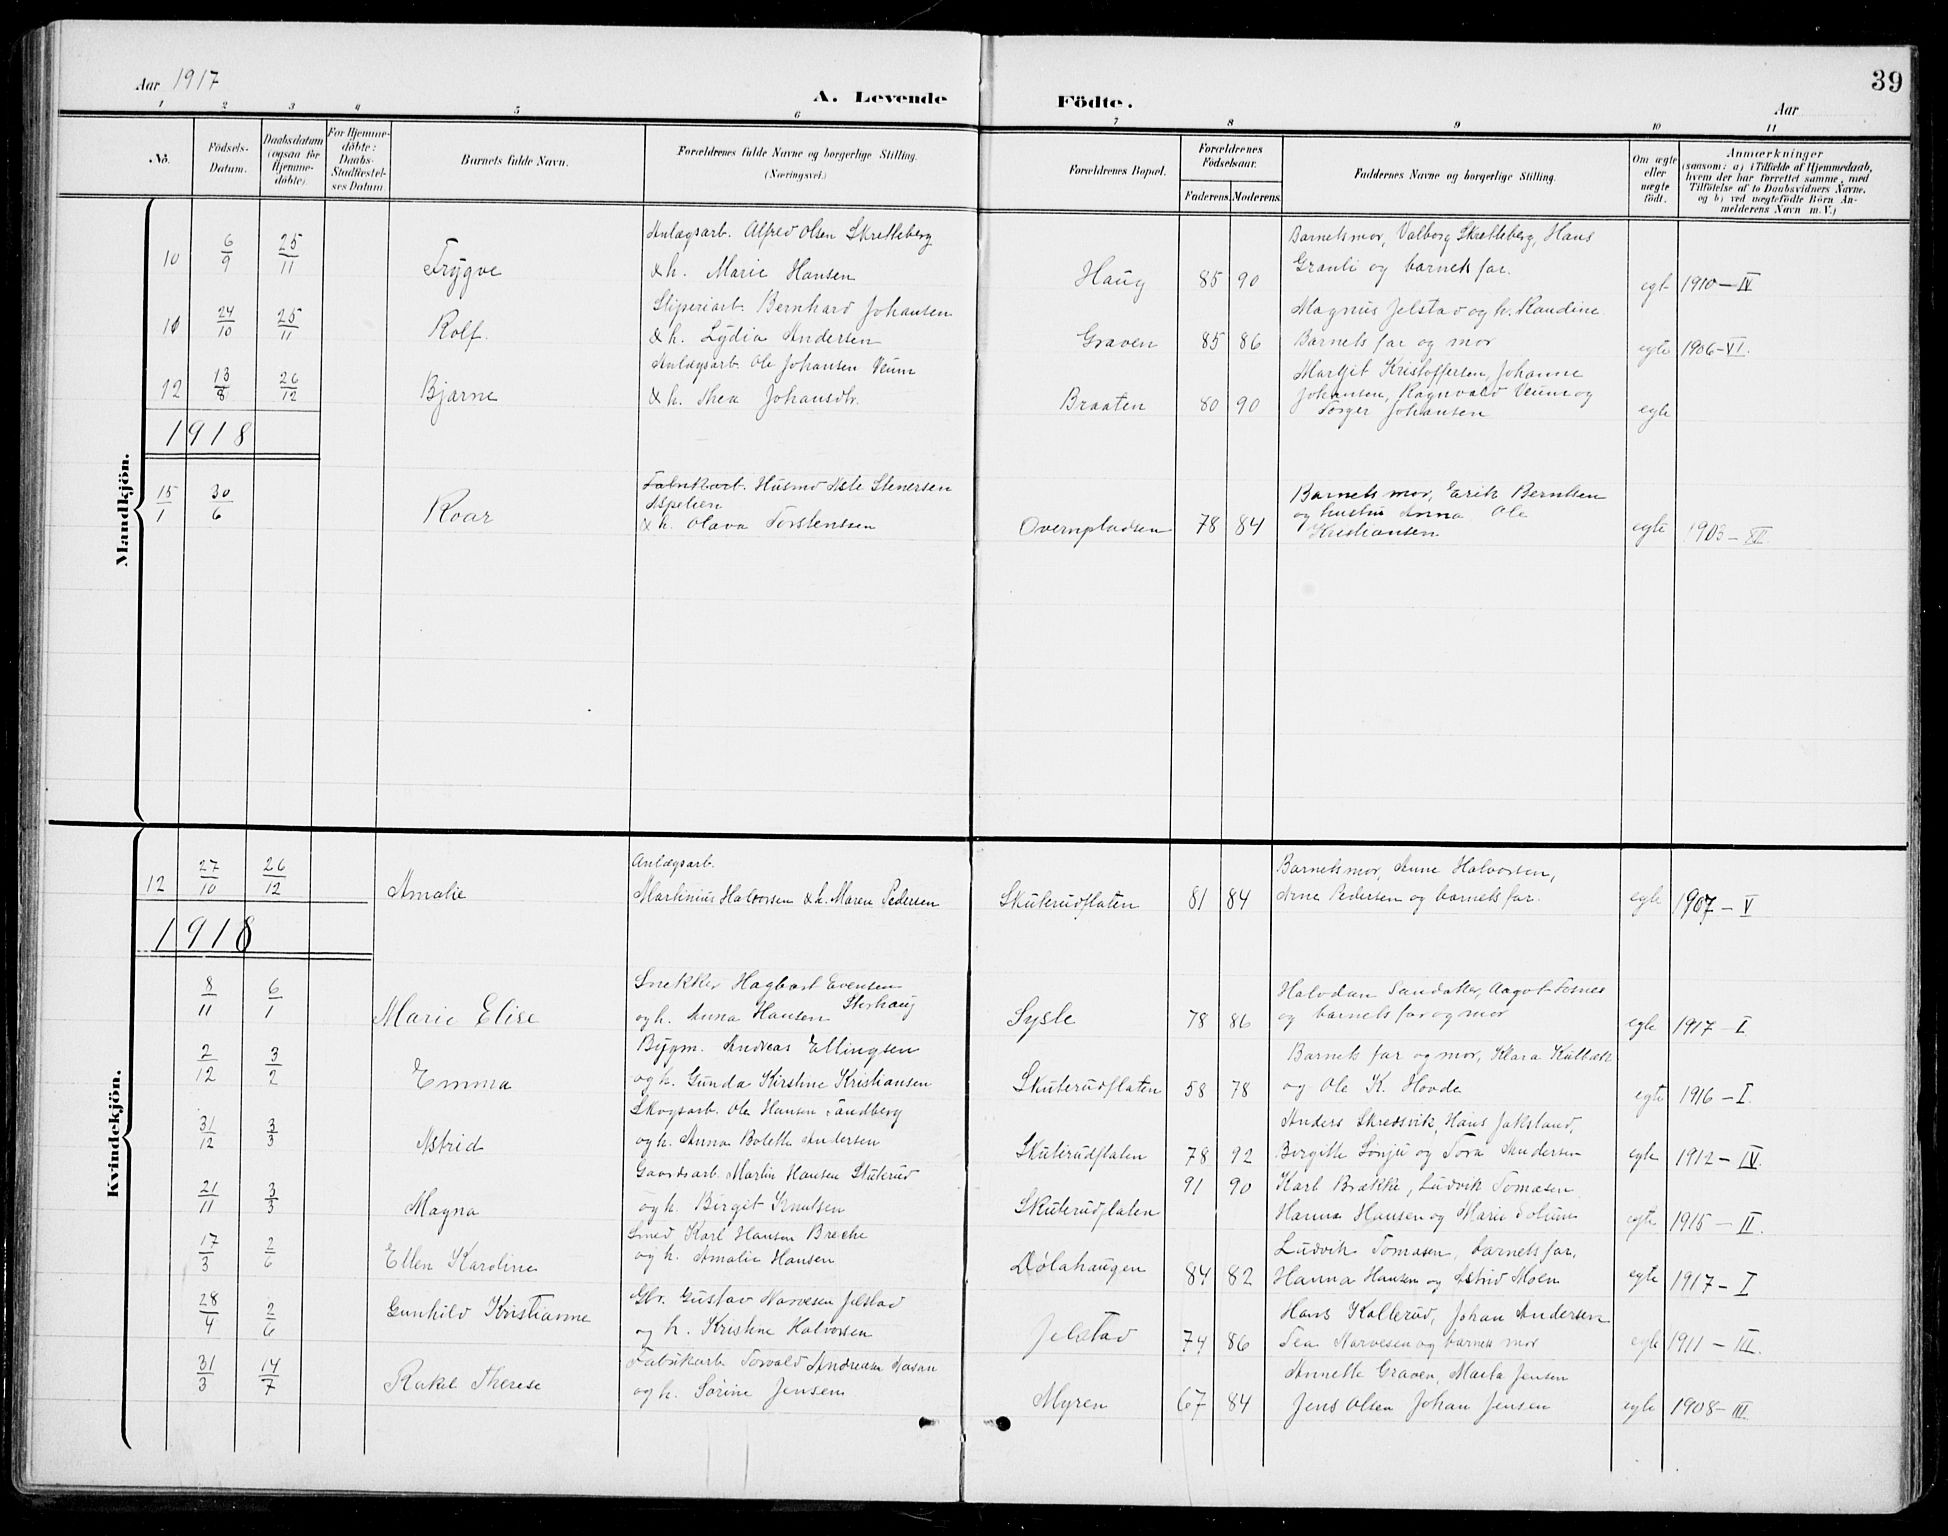 39
Aar 1917
A. Levende Födte.
Aar
1 2 3 4 5 6 7 8 9 10 11
No.
Födsels-Datum.
Daabsdatum (ogsaa för Hjemmedöbte).
For Hjemmedöbte: Daabs-Stadfæstelses Datum.
Barnets fulde Navn.
Forældrenes fulde Navne og borgerlige Stilling.
(Næringsvei.)
Forældrenes Bopæl.
Forældrenes Födselsaar.
Faderens. Moderens.
Faddernes Navne og borgerlige Stilling.
Om ægte eller uægte födt.
Anmærkninger
(saasom: a) i Tilfælde af Hjemmedaab,
hvem der har forrettet samme, med
Tilföielse af to Daabsvidners Navne,
og b) ved uægtefödte Börn An-
melderens Navn m. V.)
Mandkjön.
10 6/9 25/11 Trygve Anlægsarb. Alfred Olsen Skretteberg
& h. Marie Hansen Haug 85 90 Barnets mor, Valborg Skretteberg, Hans
Granli og barnets far. egt 1910 – IV
11 24/10 25/11 Rolf. Sliperiarb. Bernhard Johansen
& h. Lydia Andersen Graven 85 86 Magnus Jelstad og h. Randine
Barnets far og mor egte 1906 – VI.
12 13/8 26/12 Bjarne Anlægsarb. Ole Johansen Veum
& h. Thea Johansdtr. Braaten 80 90 Margit Kristoffersen, Johanne
Johansen, Ragnvald Veum og
Torger Johansen egte
1918
15/1 30/6 Roar Fabrikarb. Husmd Asle Stenersen
Aspelien
& h. Olava Torstensen Overnpladsen 78 84 Barnets mor, Erik Berntsen
og hustru Anna, Ole
Kristiansen egte
Kvindekjön.
12 27/10 26/12 Amalie Anlægsarb.
Martinius Halvorsen & h. Maren Pedersen Skuterudflaten 81 84 Barnets mor, Anne Halvorsen,
Arne Pedersen og barnets far. egte 1907 – V
1918
8/11 6/1 Marie Elise Snekker Hagbart Evensen
Storhaug
og h. Anna Hansen Sysle 78 86 Halvdan Sandaker, Aagot Tesnes
og barnets far og mor egte 1917 – I
2/12 3/2 Emma Bygm. Andreas Ellingsen
og h. Gunda Kirstine Kristiansen Skuterudflaten 58 78 Barnets far og mor, Klara Kulbæk
og Ole K. Hovde egte 1916 – I.
31/12 3/3 Astrid Skogsarb. Ole Hansen Sandberg
og h. Anna Bolette Andersen Skuterudflaten 78 92 Anders Skredsvik, Hans Jakslaad,
Birgitte Sönju og Tora Andersen egte 1912 – IV.
21/11 3/3 Magna Gaardsarb. Martin Hansen Skuterud
og h. Birgit Knutsen Skuterudflaten 91 90 Karl Brække, Ludvik Tomasen
Hanna Hansen og Marie egte 1915 – II.
17/3 2/6 Ellen Karoline Smed Karl Hansen Breche
og h. Amalie Hansen Dølahaugen 84 82 Ludvik Tomasen, barnets far,
Hanna Hansen og Astrid Moen egte 1917 – I
28/4 2/6 Gunhild Kristianne Gbr. Gustav Narvesen Jelstad
og h. Kristine Halvorsen Jelstad 74 86 Hans Kollerud, Johan Andersen
Tea Narvesen og barnets mor egte 1911 – III.
31/3 14/7 Rakel Therese Fabrikarb Torvald Andreasen
og h. Sørine Jensen Myren 67 84 Annette Graven, Marta Jensen
Jens Olsen Johan Jensen egte 1908 – III.